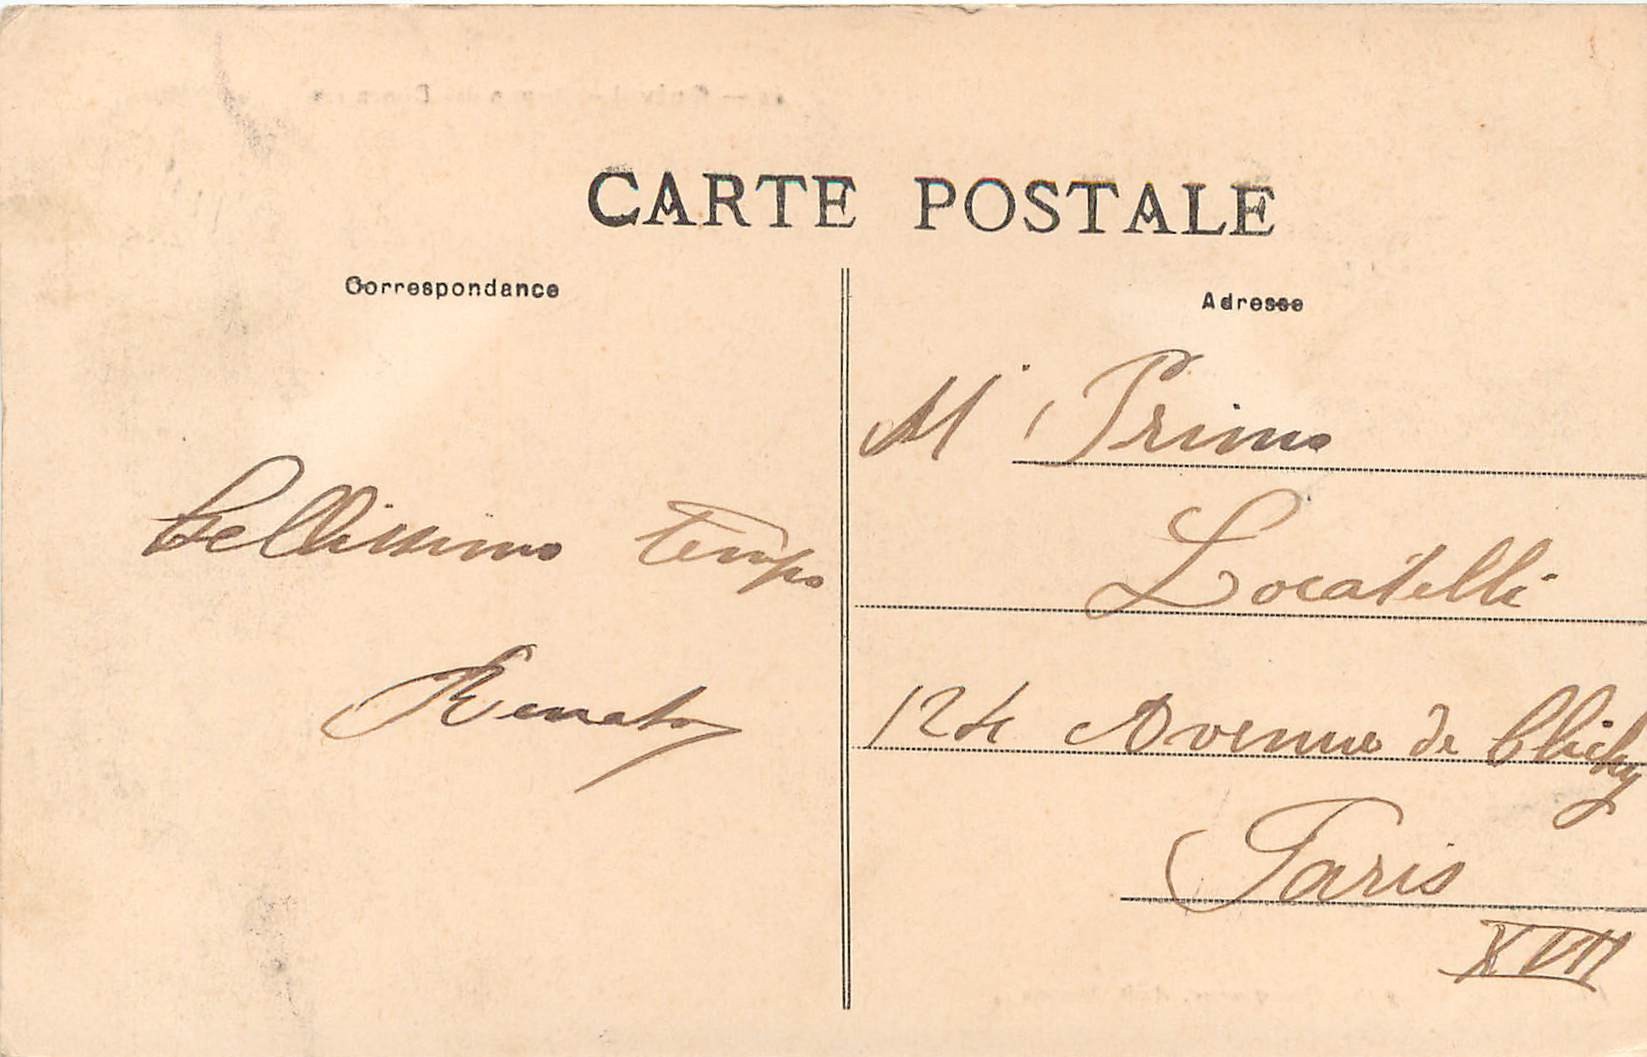 CARTE POSTALE
Correspondance
bellissimo tempo
Renato
Adresse
Mr Primo
Locatelli
124 Avenue de Clichy
Paris
XVII